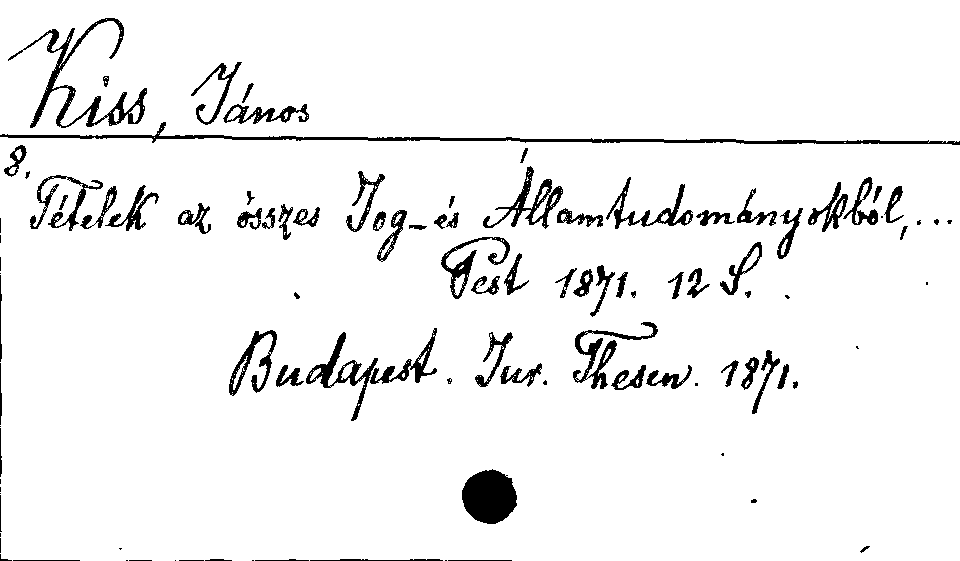 Kiss, János
8.
Tételek az összes Jog- és Államtudományokból,...
Pest 1871. 12 S.
Budapest. Jur. Thesen. 1871.